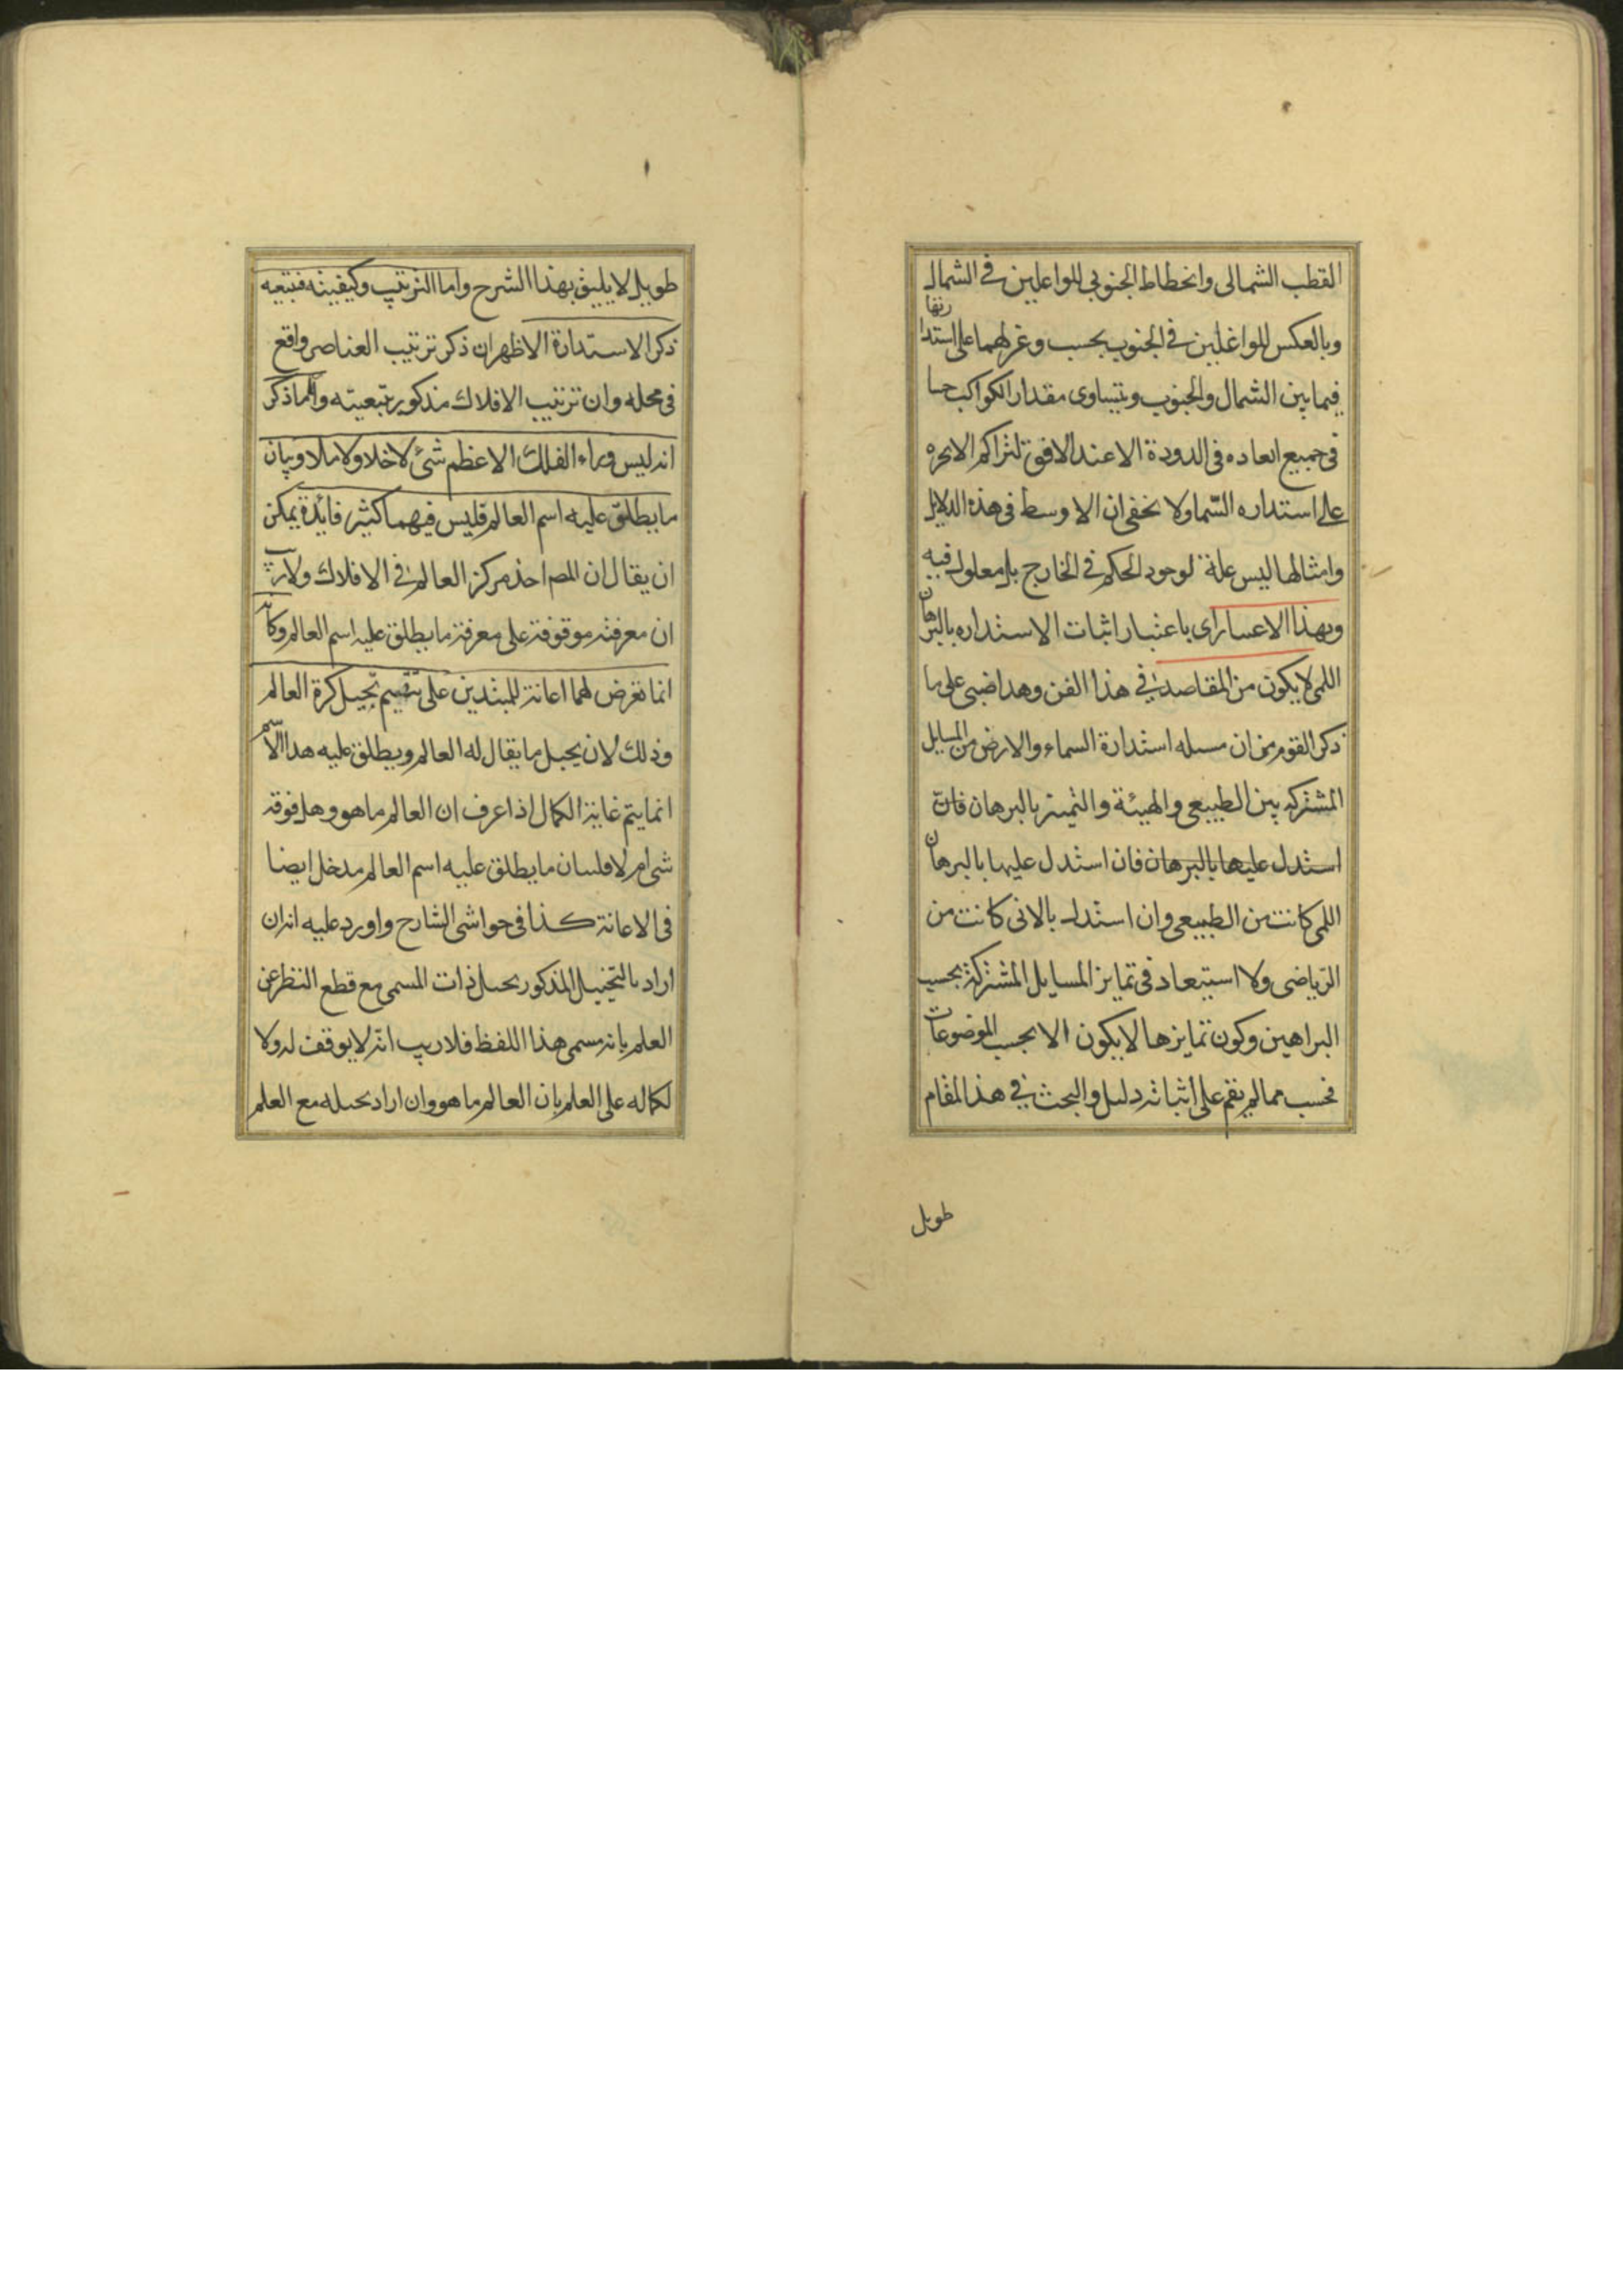 القطب الشمالى وانحطاط الجنوبى للواغلين فى الشمال
وبالعكس للواغلين فى الجنوب بحسب وغولهما على استدا
رتها
فيما بين الشمال والجنوب وبتساوى مقدار الكواكب حسا
فى جميع ابعاده فى الدورة الا عند الافق لتراكم الابخره
على استداره السّما ولا يخفى ان الاوسط فى هذه الدلايل
وامثالها ليس علة لوجود الحكم فى الخارج بل معلول فيه
وبهذا الاعتبار اى باعتبار اثبات الاستداره بالبرهان
اللمى لا يكون من المقاصد فى هذا الفن وهذا مبنى على ما
ذكر القوم من ان مسله استدارة السماء والارض من المسايل
المشتركه بين الطبيعى والهيئة والتميز بالبرهان فان
استدل عليها بالبرهان فان استدل عليها بالبرهان
اللمى كانت من الطبيعى وان استدل بالانى كانت من
الرياضى ولا استبعاد فى تمايز المسايل المشتركة بحسب
البراهين وكون تمايزها لا يكون الا بحسب الموضوعات
فحسب مما لم يقم على اثباته دليل والبحث فى هذا المقام
طويل
طويل لا يليق بهذا الشرح واما الترتيب وكيفيته فبتبعيه
ذكر الاستدارة الاظهر ان ذكر ترتيب العناصر واقع
فى محله وان ترتيب الافلاك مذكور بتبعيته واما ذكر
انه ليس وراء الفلك الاعظم شئ لا خلا ولا ملا وبيان
ما يطلق عليه اسم العالم فليس فيهما كثير فايدة يمكن
ان يقال ان المص اخذ مركز العالم فى الافلاك ولا ريب
ان معرفته موقوفة على معرفة ما يطلق عليه اسم العالم وكانه
انما تعرض لهما اعانة للمبتدين على تتميم تخيل كرة العالم
وذلك لان تخيل ما يقال له العالم ويطلق عليه هذا الاسم
انما يتم غاية الكمال اذا عرف ان العالم ما هو وهل فوقه
شى ام لا فلبيان ما يطلق عليه اسم العالم مدخل ايضا
فى الاعانة كذا فى حواشى الشارح واورد عليه انه ان
اراد بالتخييل المذكور تخيل ذات المسمى مع قطع النظر عن
العلم بانه مسمى هذا اللفظ فلا ريب انه لا يوقف له ولا
لكماله على العلم بان العالم ما هو وان اراد تخيله مع العلم